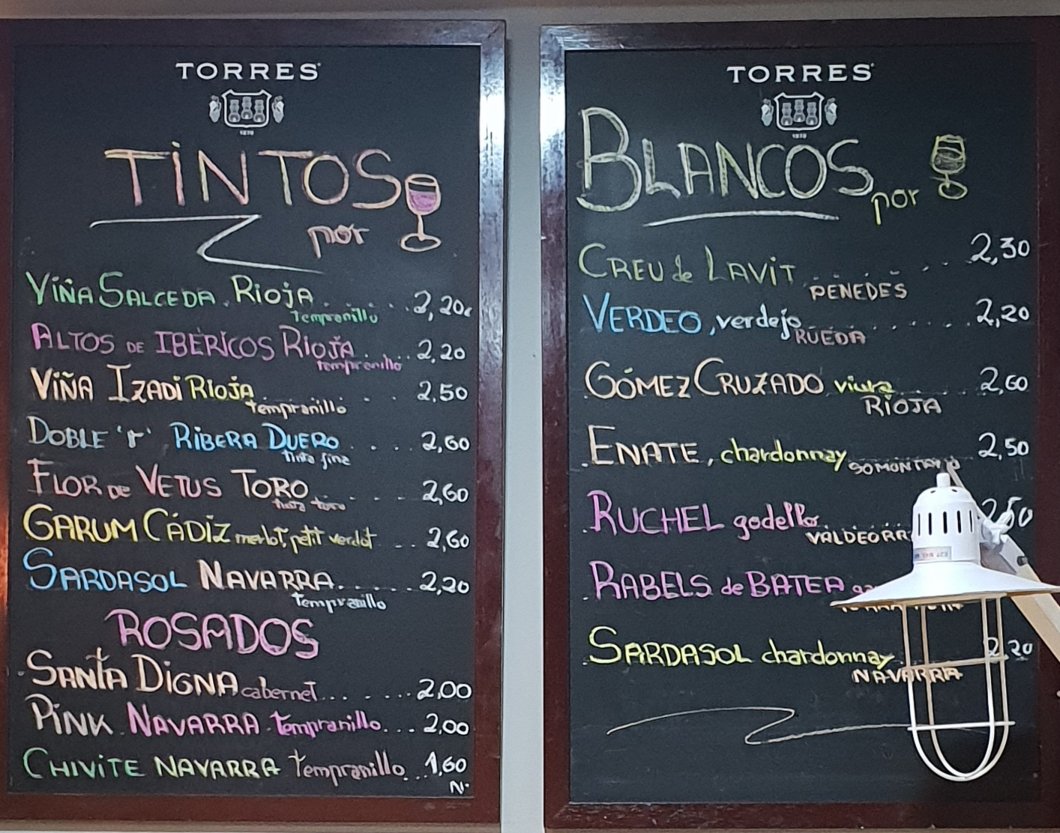 TORRES
1870
TINTOS
por
VIÑA SALCEDA. RIOJA ........ 2,20€
Tempranillo
ALTOS DE IBÉRICOS RIOJA ..... 2,20
tempranillo
VIÑA IZADI RIOJA ........ 2,50
tempranillo
DOBLE 'r' RIBERA DUERO .... 2,60
tinta fina
FLOR DE VETUS TORO ...... 2,60
tinta toro
GARUM CÁDIZ merlot, petit verdot ... 2,60
SARDASOL NAVARRA ..... 2,20
Tempranillo
ROSADOS
SANTA DIGNA cabernet ........ 2,00
PINK NAVARRA tempranillo .... 2,00
CHIVITE NAVARRA tempranillo ... 1,60
N.
TORRES
1870
BLANCOS
por
CREU de LAVIT ........ 2,30
PENEDES
VERDEO, verdejo ........ 2,20
RUEDA
GÓMEZ CRUZADO viura ..... 2,60
RIOJA
ENATE, chardonnay ..... 2,50
RUCHEL godello ......
RABELS de BATEA
SARDASOL chardonnay 2,20
NAVARRA